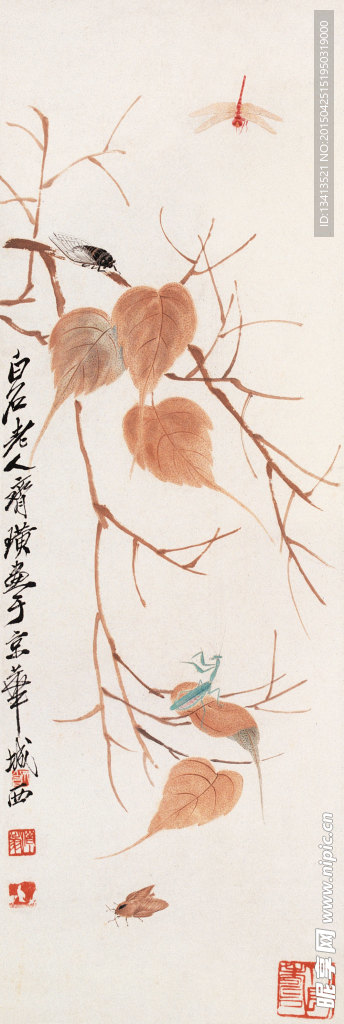 白石老人齊璜畫于京華城西
ID:13413521 NO:20150425151950319000
昵享网 www.nipic.cn